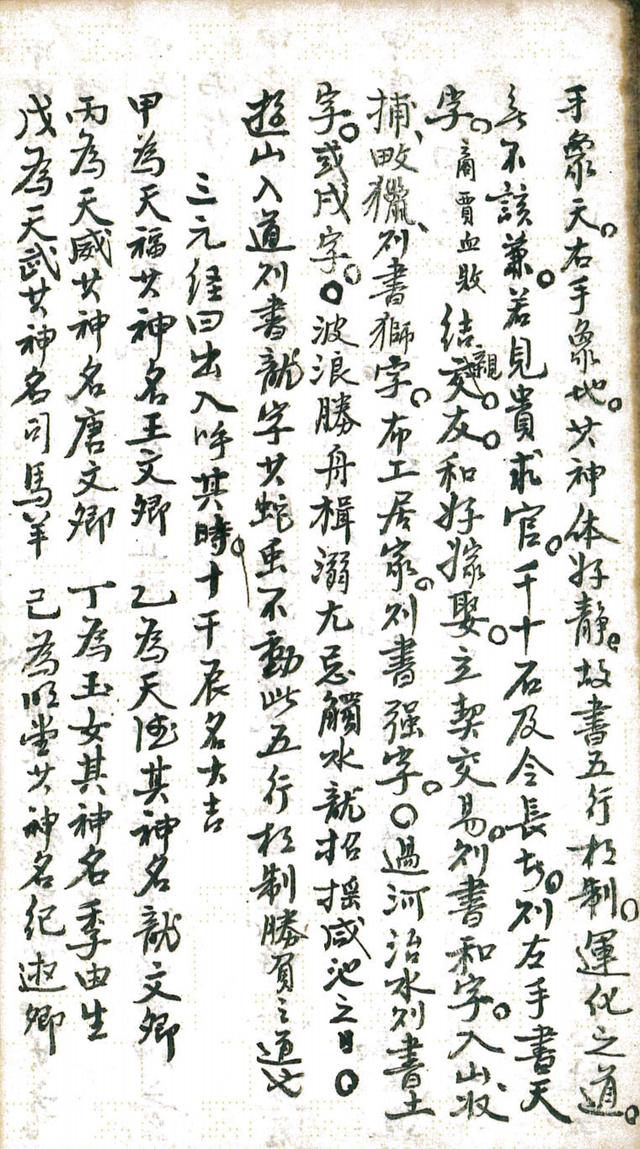 手象天。右手象地。其神体好静。故書五行相制。運化之道。
無不該兼。若見貴求官。千十石及令長。則左手書天
字。商賈血敗結交親友。和好嫁娶。立契交易。則書和字。入山
捕、畋獵、则書獅字。布工居家。则書强字。〇過河治水则書土
字。或戌字。〇波浪勝舟楫溺尤忌觸水龍招摇咸池之日〇
遊山入道则書龍字其蛇虫不動此五行相制勝負之道也
三元経曰出入呼其時。十干辰名大吉
甲為天福其神名王文卿 乙為天德其神名龍文卿
丙為天威其神名唐文卿 丁為玉女其神名季由生
戊為天武其神名司馬羊 己為明堂其神名紀游卿